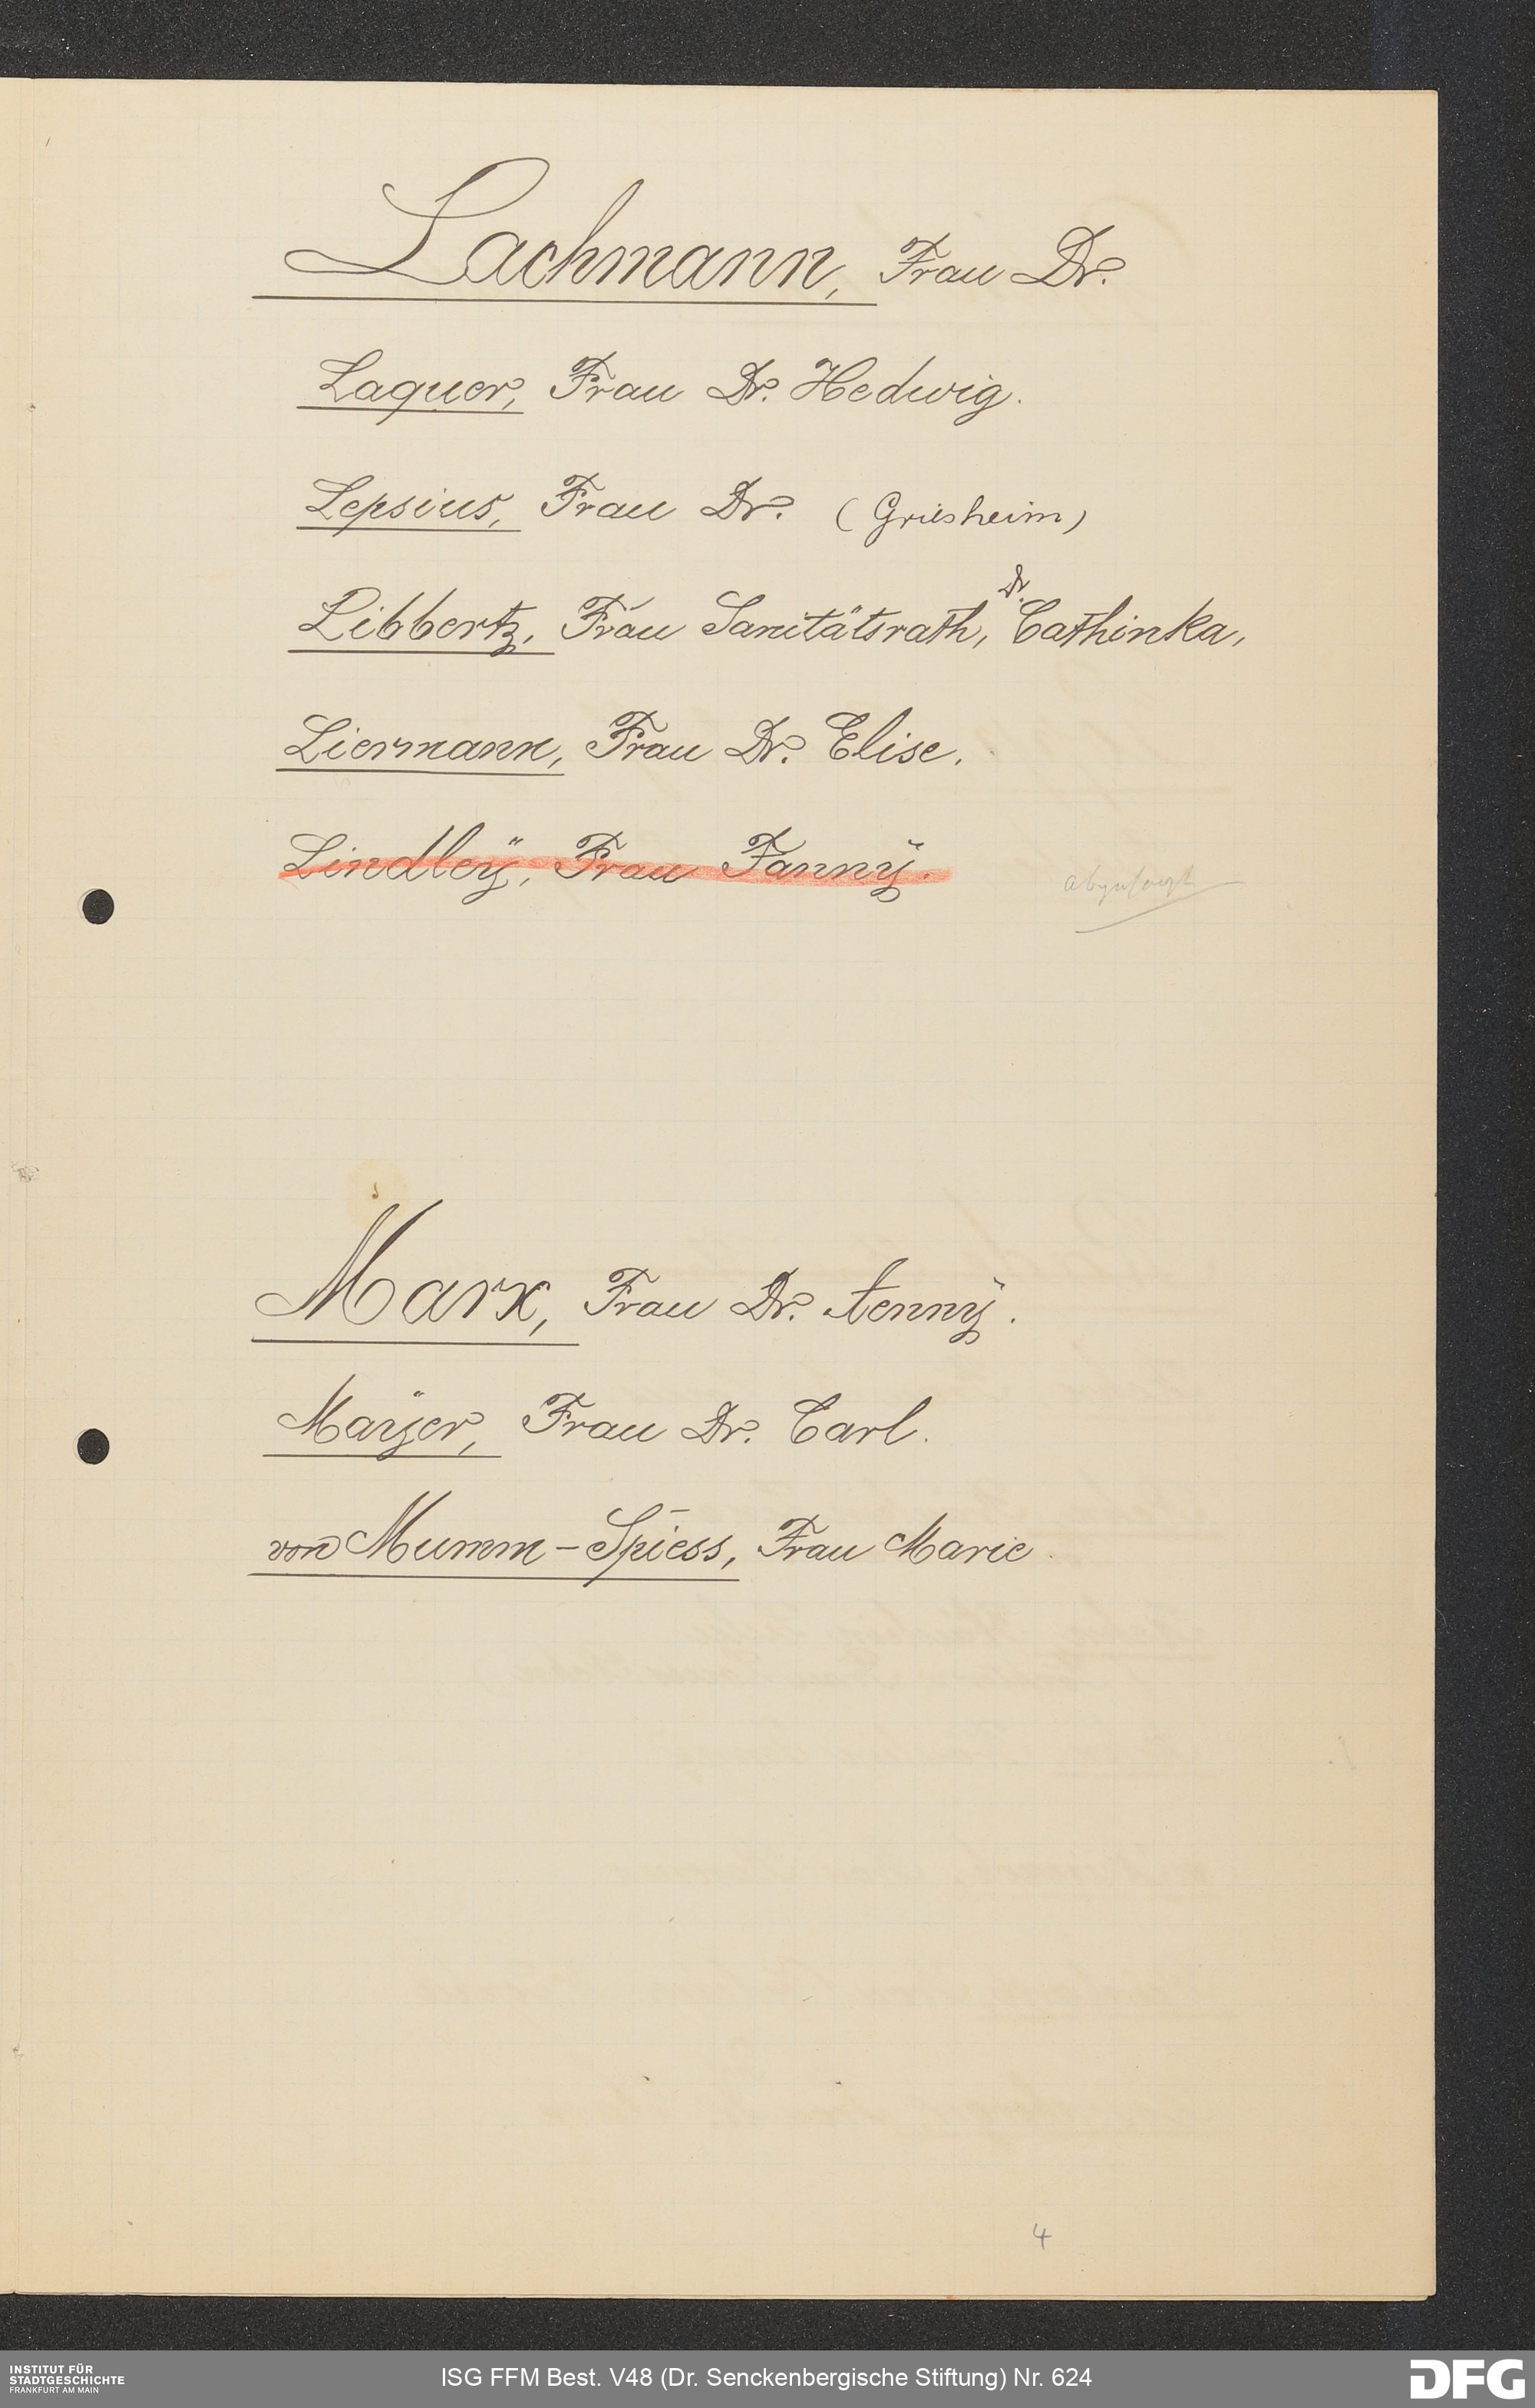 Lachmann, Frau Dr.
Laquer, Frau Dr. Hedwig.
Lepsius, Frau Dr. (Griesheim)
Libbertz, Frau Sanitätsrath, Dr. Cathinka,
Liermann, Frau Dr. Elise.
Lindleÿ, Frau Fannÿ. abgesagt
Marx, Frau Dr. Jennÿ.
Maÿer, Frau Dr. Carl.
von Mumm-Spiess, Frau Marie
4
INSTITUT FÜR
STADTGESCHICHTE
FRANKFURT AM MAIN
ISG FFM Best. V48 (Dr. Senckenbergische Stiftung) Nr. 624
DFG